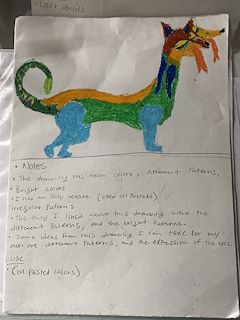 - Color Pencils
• Notes
• The drawing has neon colors, different Patterns,
• Bright colors
• I has an oily texture (used oil Pastels)
Irregular Patterns
• The thing I liked about this drawing were the
different Patterns, and the bright Patterns.
• Some ideas from this drawing I can take for my
own are different Patterns, and the expression of the eyes.
use
• (oil Pasted colors)